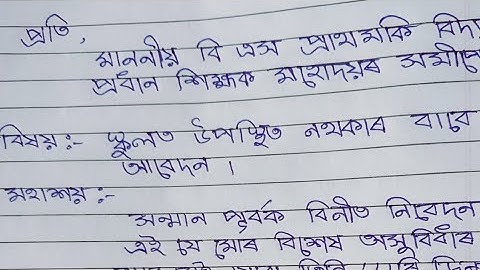 প্ৰতি,
মাননীয় বি এস প্ৰাথমকি
প্ৰধান শিক্ষক মহোদয়ৰ সমীপে
বিষয়:- স্কুলত উপস্থিত নথকাৰ বাবে
আবেদন।
মহাশয়:-
সন্মান পূৰ্বক বিনীত নিবেদন
এই যে মোৰ বিশেষ অসুবিধাৰ